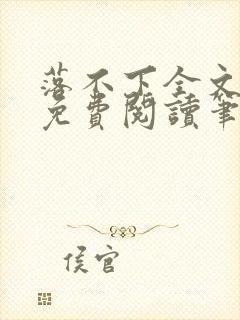 落不下全文
免費閱讀筆
侯官